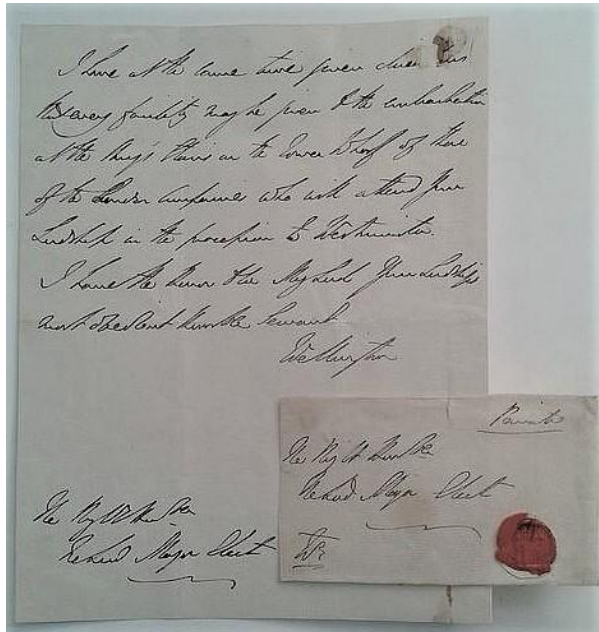 I have at the same time given directions
that every facility may be given to the embarkation
at the King's Stairs on the Tower Wharf of those
of the London Companies who will attend Your
Lordship in the procession to Westminster.
I have the honor to be My Lord Your Lordship's
most obedient humble Servant
Wellington
The Rig Honble
The Lord Mayor Elect
Private
The Right Honble
The Lord Mayor Elect